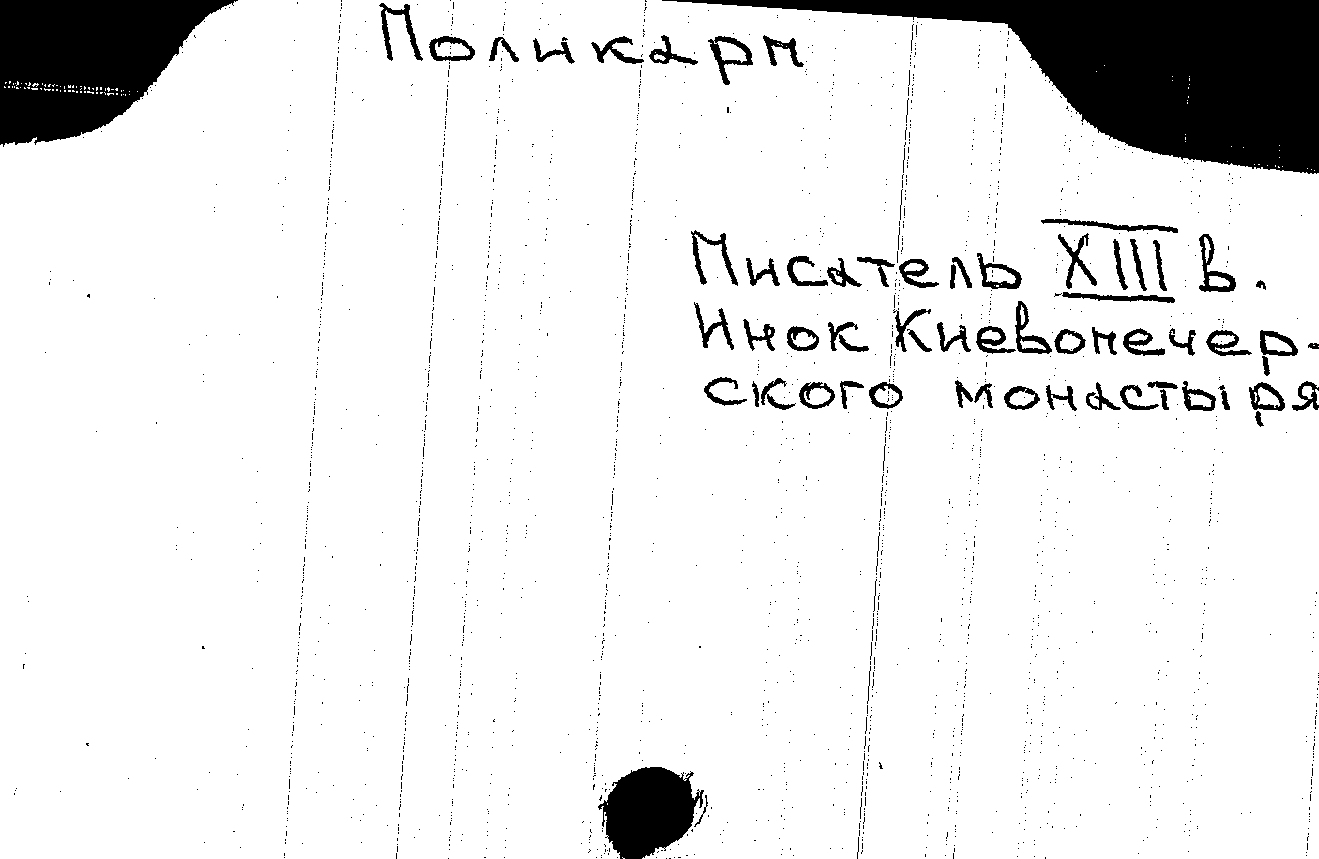 Поликарп
Писатель XIII в.
Инок Киевопечер-
ского монастыря